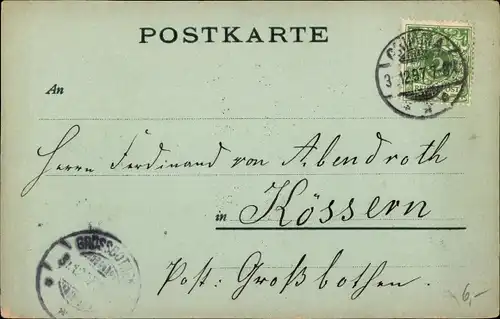 POSTKARTE
3 12.97
An
Herrn Ferdinand von Abendroth
in Kössern
GROSSBOTHEN
Post: Großbothen.
6,-